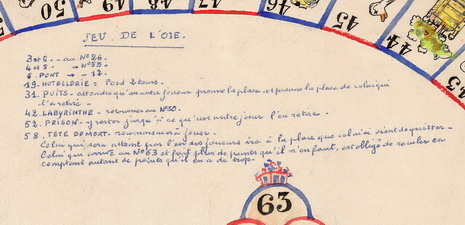 50
49
48
47
46
45
44
43
JEU DE L'OIE.
3 et 6 - au N° 26.
4 et 5 - → N° 53
6. PONT → - 12.
19. HOTELLERIE = Perd 2 tours.
31. PUITS - attendre qu'un autre joueur prenne la place et prend la place de celui qui
l'a retiré -
42. LABYRINTHE - retourner au N° 30.
52. PRISON - y rester jusqu'à ce qu'un autre joueur l'en retire.
58. TETE DE MORT - recommencer à jouer.
Celui qui sera atteint par l'un des joueurs ira à la place que celui-ci vient de quitter.
Celui qui arrive au N° 63 et fait plus de points qu'il n'en faut, est obligé de reculer en
comptant autant de points qu'il en a de trop.
63